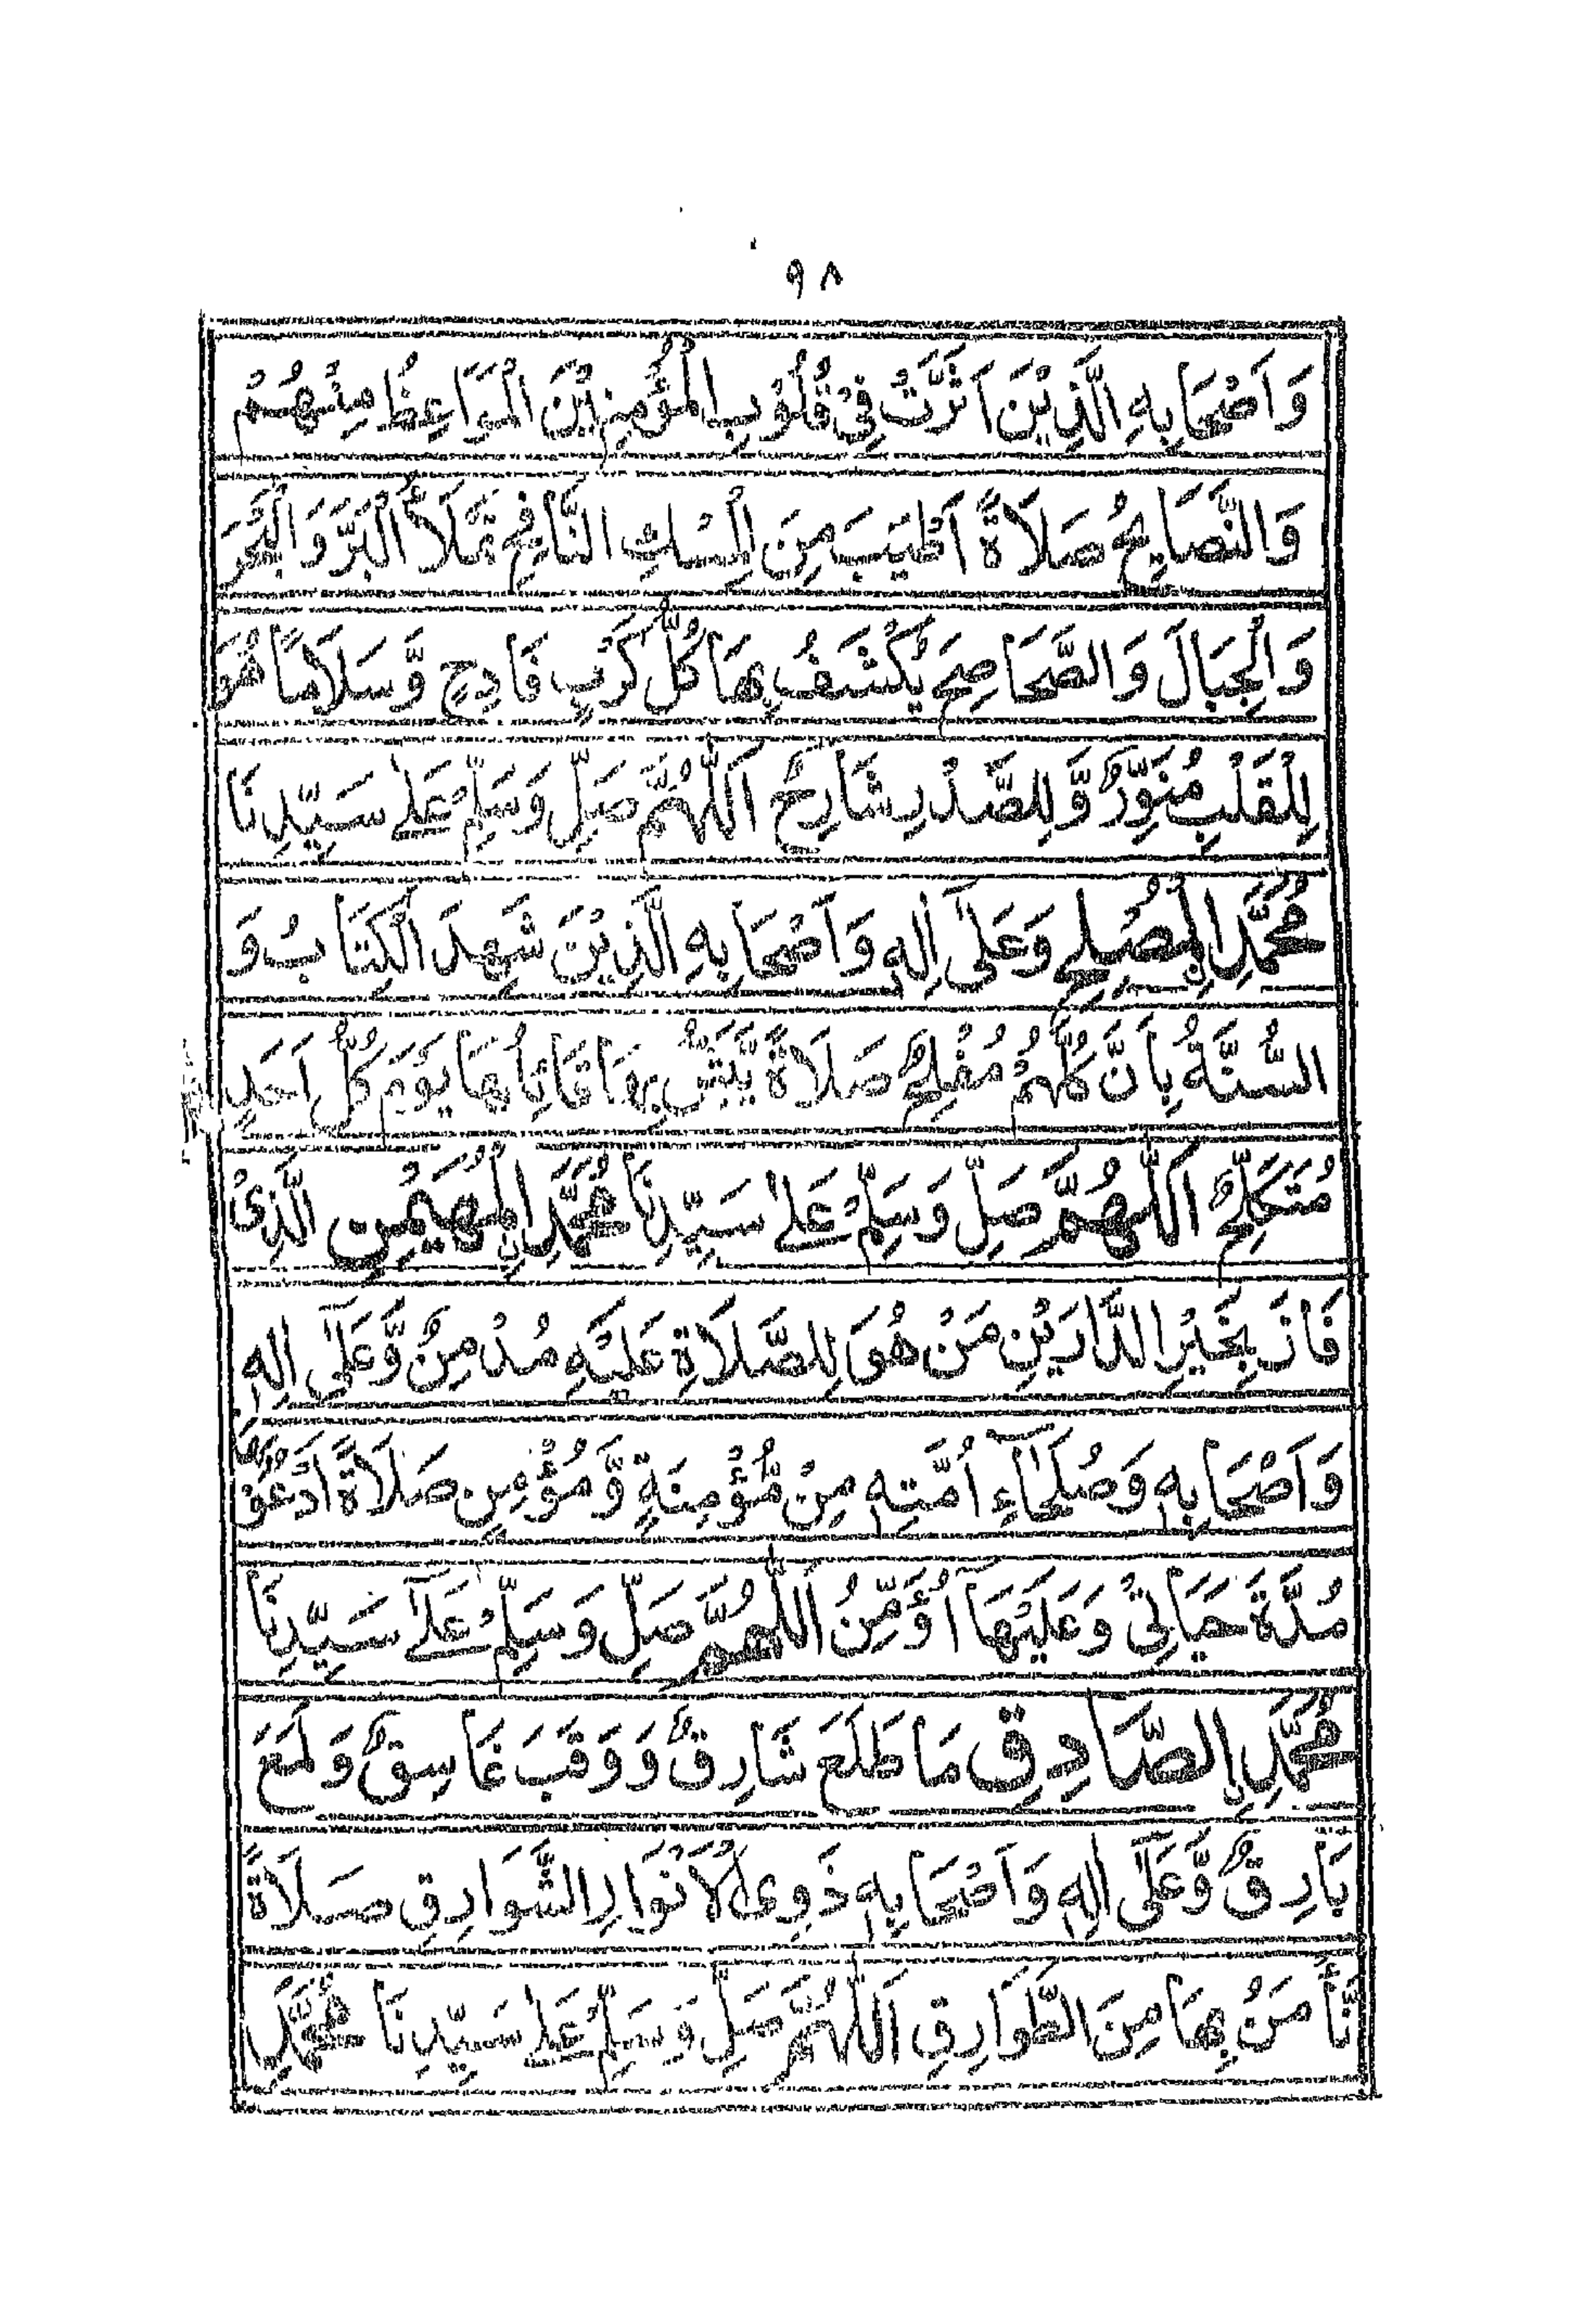 ٩٨
وَاَصْحَابِهِ الَّذِيْنَ اَثَّرَتْ فِيْ قُلُوْبِ الْمُؤْمِنِيْنَ الْمَوَاعِظُ مِنْهُمْ
وَالنَّصَايِحُ صَلَاةً اَطْيَبَ مِنَ الْمِسْكِ النَّافِحِ تَمْلَأُ الْبَرَّ وَالْبَحْرَ
وَالْجِبَالَ وَالصَّحَاصِحَ يُكْشَفُ بِهَا كُلُّ كَرْبٍ فَادِحٍ وَّسَلَامًا هُوَ
لِلْقَلْبِ مُنَوِّرٌ وَّلِلصَّدْرِ شَارِحٌ اَللّٰهُمَّ صَلِّ وَسَلِّمْ عَلٰى سَيِّدِنَا
مُحَمَّدِ الْمُصْلِحِ وَعَلٰى اٰلِهٖ وَاَصْحَابِهِ الَّذِيْنَ شَهِدَ الْكِتَابُ وَ
السُّنَّةُ بِاَنَّ كُلَّهُمْ مُفْلِحٌ صَلَاةً يَّتَبَشَّرُ بِهَا قَائِلُهَا يَوْمَ كُلُّ اَحَدٍ
مُتَكَلِّحٌ اَللّٰهُمَّ صَلِّ وَسَلِّمْ عَلٰى سَيِّدِنَا مُحَمَّدِ الْمُهَيْمِنِ الَّذِيْ
فَازَ بِخَيْرِ الدَّارَيْنِ مَنْ هُوَ لِلصَّلَاةِ عَلَيْهِ مُدْمِنٌ وَّعَلٰى اٰلِهٖ
وَاَصْحَابِهٖ وَصُلَحَاءِ اُمَّتِهٖ مِنْ مُّؤْمِنَةٍ وَّمُؤْمِنٍ صَلَاةً اَدْعُوْ
مُدَّةَ حَيَاتِيْ وَعَلَيْهَا اُؤَمِّنُ اللّٰهُمَّ صَلِّ وَسَلِّمْ عَلٰى سَيِّدِنَا
مُحَمَّدِ الصَّادِقِ مَا طَلَعَ شَارِقٌ وَوَقَبَ غَاسِقٌ وَلَمَعَ
بَارِقٌ وَّعَلٰى اٰلِهٖ وَاَصْحَابِهٖ ذَوِى الْاَنْوَارِ الشَّوَارِقِ صَلَاةً
نَأْمَنُ بِهَا مِنَ الطَّوَارِقِ اَللّٰهُمَّ صَلِّ وَسَلِّمْ عَلٰى سَيِّدِنَا مُحَمَّدِ